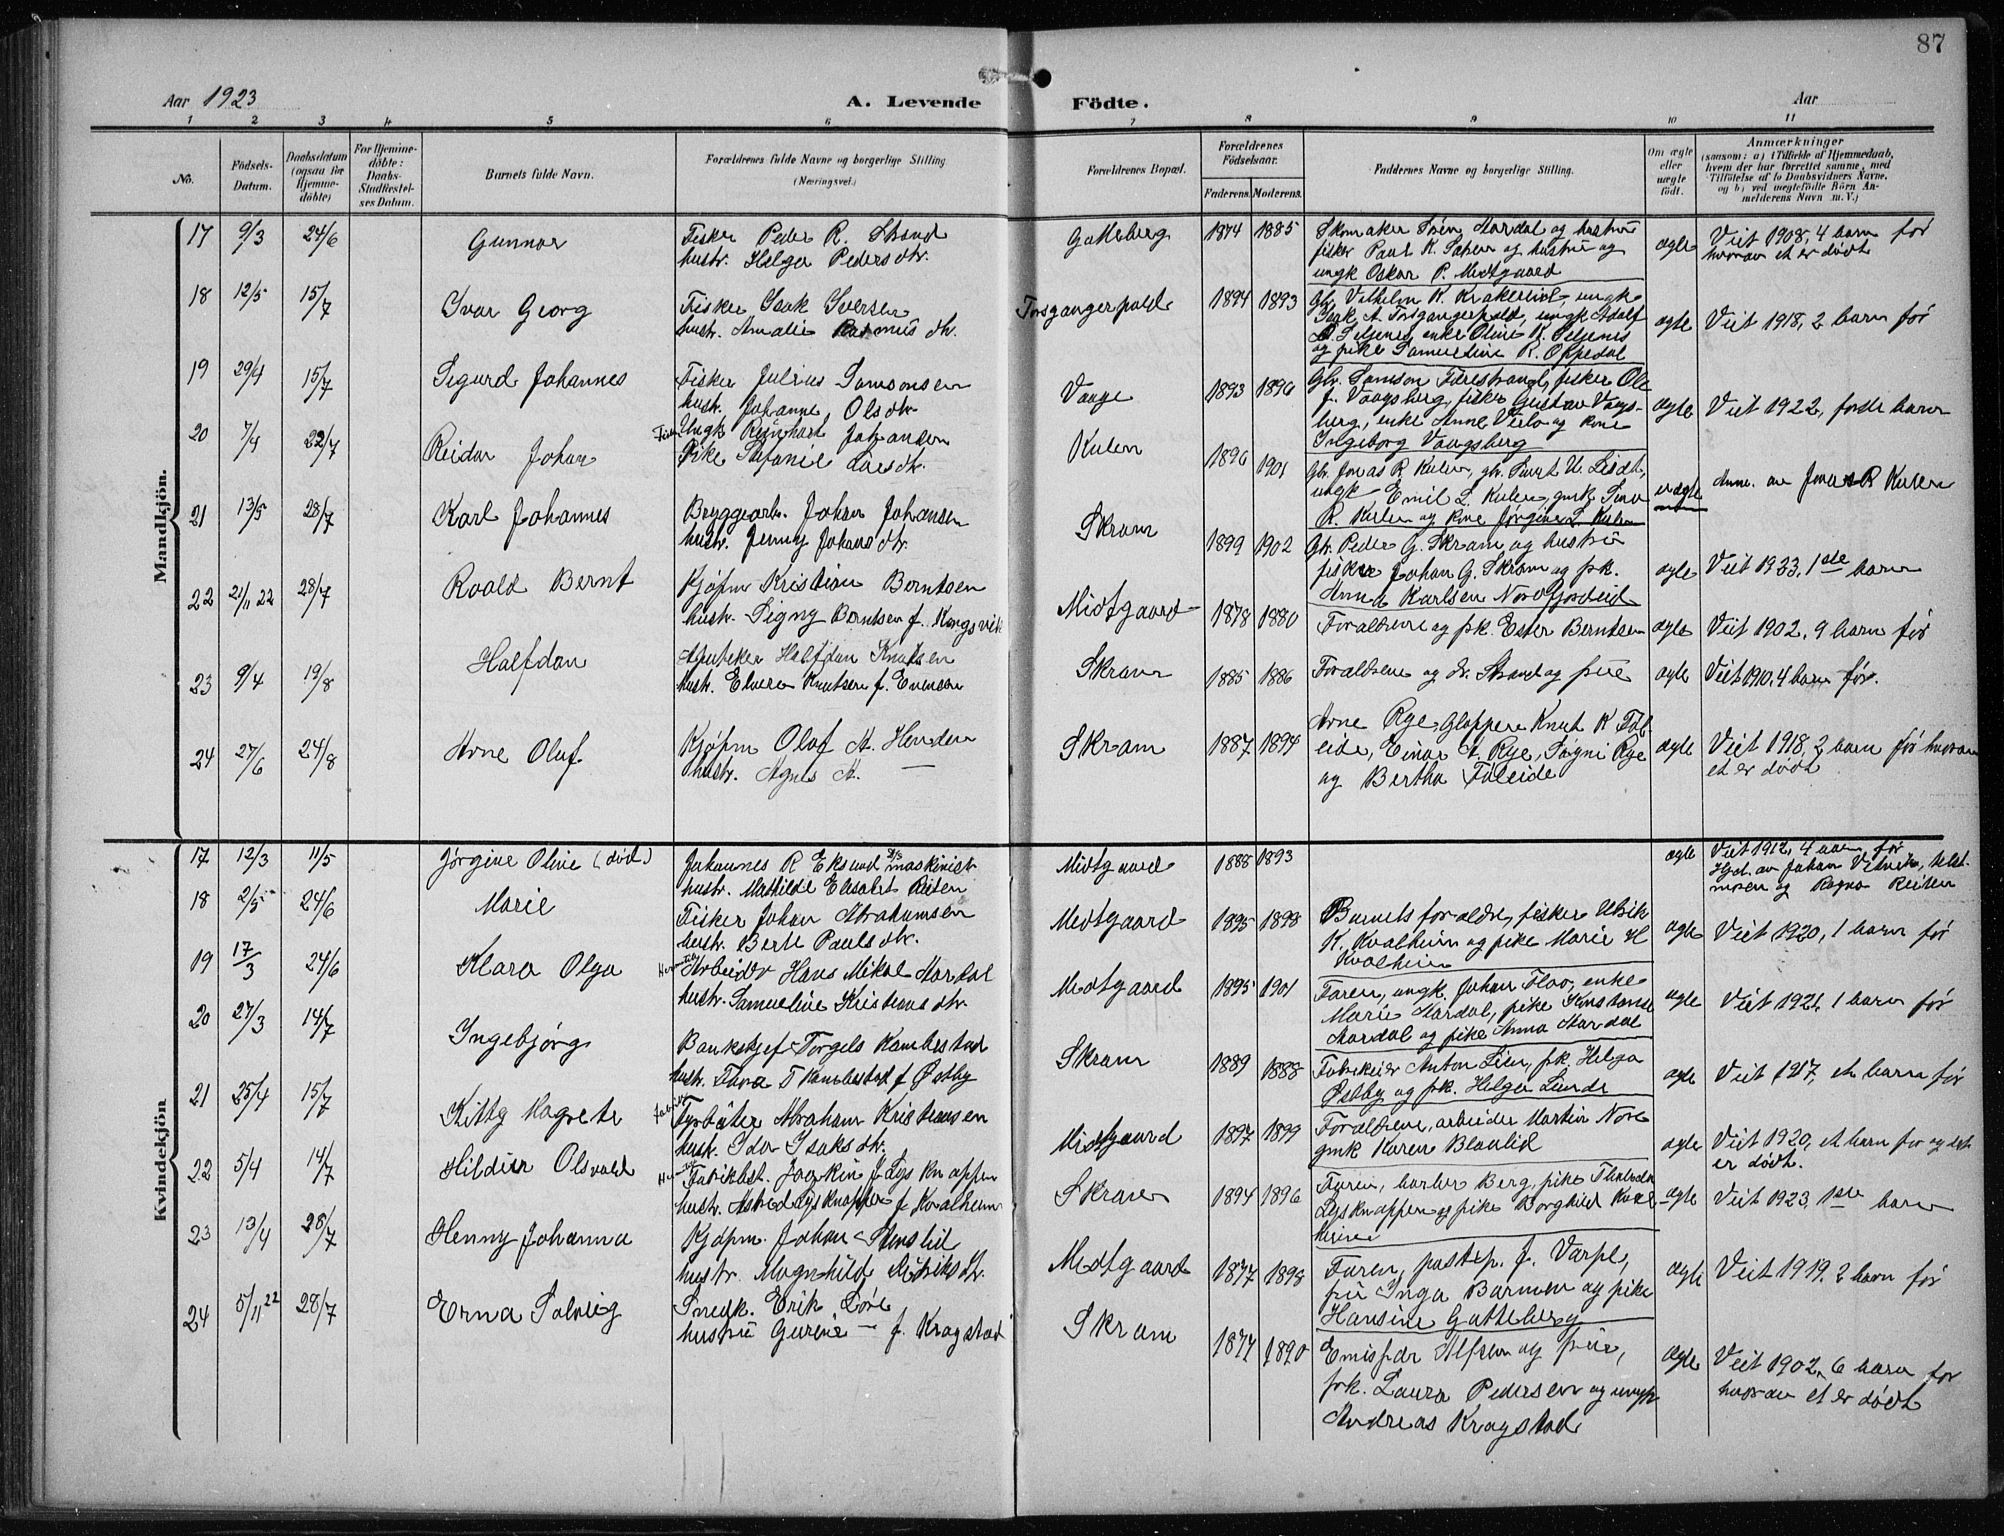 87
Aar 1923
A. Levende Födte.
Aar
1 2 3 4 5 6 7 8 9 10 11
No.
Födsels-Datum.
Daabsdatum (ogsaa for Hjemmedöbte)
For Hjemmedöbte: Daabs-Stadfestelses Datum.
Barnets fulde Navn.
Forældrenes fulde Navne og borgerlige Stilling. (Næringsvei.)
Forældrenes Bopæl.
Forældrenes Födselsaar.
Faderens. Moderens.
Faddernes Navne og borgerlige Stilling.
Om ægte eller uægte födt.
Anmerkninger
(saasom: a) i Tilfælde af Hjemmedaab, hvem der har forrettet samme, med Tilföielse af to Daabsvidners Navne, og b) ved uægtefödte Börn Anmelderens Navn m. V.)
Mandkjön.
17 9/3 24/6 Gunnar
Fisker Peder R.
hustr. Helga Pedersdtr.
Gatteberg 1874 1885
Skomaker Sören Aardal og hustru
fisker Paul K. og hustru og
ungk Oskar P. Midtgaard
ægte
Viet 1908, 4 barn før
hvorav et er dødt
18 12/5 15/7 Ivar Georg
Fisker Isak Iversen
hustr. Amalie Rasmusdtr.
Torsgangerpold 1894 1893
Gbr. Vilhelm K. ungk
Isak A. ungk Adolf
enke Oline K.
og pike Samueline R. Oppedal
ægte
Viet 1918, 2 barn før
19 29/4 15/7 Sigurd Johannes
Fisker Julius Samsonsen
hustr. Johanne Olsdtr.
Vaage 1893 1896
Gbr. Samson Færestrand, fisker Ole
J. Vaagsberg, fisker Gustav Vaags-
berg, enke Anne og kone
Ingeborg Vaagsberg
ægte
Viet 1922, første barn
20 7/4 22/7 Reidar Johan
Fisker Ungk Reinhart
Pike Larsdtr.
Kulen 1896 1901
Gbr. Jonas R Kulen, gbr.
ungk Emil L. Kulen, gmk
R. Kulen og kone Jørgine L. Kulen
uægte
Anm. av Jonas R Kulen
21 13/5 28/7 Karl Johannes
Bryggearb. Johan Johansen
hustr. Jenny Johansdtr.
Skram 1899 1902
Gbr. Peder G. Skram og hustru
fisker Johan G. Skram og frk.
Anna Karlsen Nordfjordeid
ægte
Viet 1923. 1ste barn
22 21/11 22 28/7 Roald Bernt
Kjøpm Kristian Berntsen
hustr. Signy Berntsen f. Kongsvik
Midtgaard 1878 1880
Forældrene og frk. Ester Berntsen
ægte
Viet 1902. 9 barn før
23 9/4 19/8 Halfdan
Apoteker Halfdan Knutsen
hustr. Knutsen f. Evensen
Skram 1885 1886
Forældrene og dr. Strand og frue
ægte
Viet 1910. 4 barn før.
24 27/6 24/8 Arne Olaf
Kjøpm Olaf A. Henden
hustr. Agnes A. —
Skram 1887 1894
Arne Rye, Gloppen Knut K
Einar A. Rye, Rye
og Bertha
ægte
Viet 1918, 2 barn før hvorav
et er dødt
Kvindekjön
17 12/3 11/5 Jørgine Oline (død)
Johannes R Eksund maskinist
hustr. Mathilde Elisabet Reiten
Midtgaard 1888 1893
ægte
Viet 1912, 4 barn før
Hjd. av Johan
og Ragna Reiten
18 2/5 24/6 Marie
Fisker Johan Abrahamsen
hustr. Berte Paulsdtr.
Midtgaard 1895 1898
Barnets forældre, fisker
K. Kvalheim og pike Marie H
Kvalheim
ægte
Viet 1920, 1 barn før
19 17/3 24/6 Klara Olga
Arbeider Hans Mikal Aardal
hustr. Samueline Kristiansdtr.
Midtgaard 1895 1901
Faren, ungk. Johan Floo, enke
Marie Aardal, pike Konstanse
Aardal og pike Anna Aardal
ægte
Viet 1921, 1 barn før
20 27/3 14/7 Ingebjørg
Bankchef Torgels Kambestad
hustr. Thora T Kambestad f Østby
Skram 1889 1888
Anton Lien, frk. Helga
Østby og frk. Helga Lunde
ægte
Viet 1917, et barn før
21 25/4 15/7 Kitty Magrete
Fyrbøter Abraham Kristiansen
hustr. Ida Isaksdtr.
Midtgaard 1897 1899
Forældrene, arbeider Martin Nore
gmk Karen Blaalid
ægte
Viet 1920, et barn før og det
er dødt.
22 5/4 14/7 Osvald
Fabrikbest. Lysknappen
hustr. Astrid Lysknappen f Kvalheim
Skram 1894 1896
Faren, barber Berg, pike
Lysknappen og pike Borghild Kval-
heim
ægte
Viet 1923, 1ste barn
23 13/4 28/7 Henny Johanna
Kjøpm. Johan Stenslid
hustr. Magnhild
Midtgaard 1877 1898
Faren, postexp. J. Varpe,
frue Inga Barmen og pike
Hansine Gatteberg
ægte
Viet 1919. 2 barn før
24 5/11 22 28/7 Erna Solveig
Snedk. Erik
hustru Gurine — f. Kragstad
Skram 1877 1890
Alfsen og frue,
frk. Laura Pedersen og ungk
Andreas Kragstad
ægte
Viet 1902, 6 barn før
hvorav et er dødt